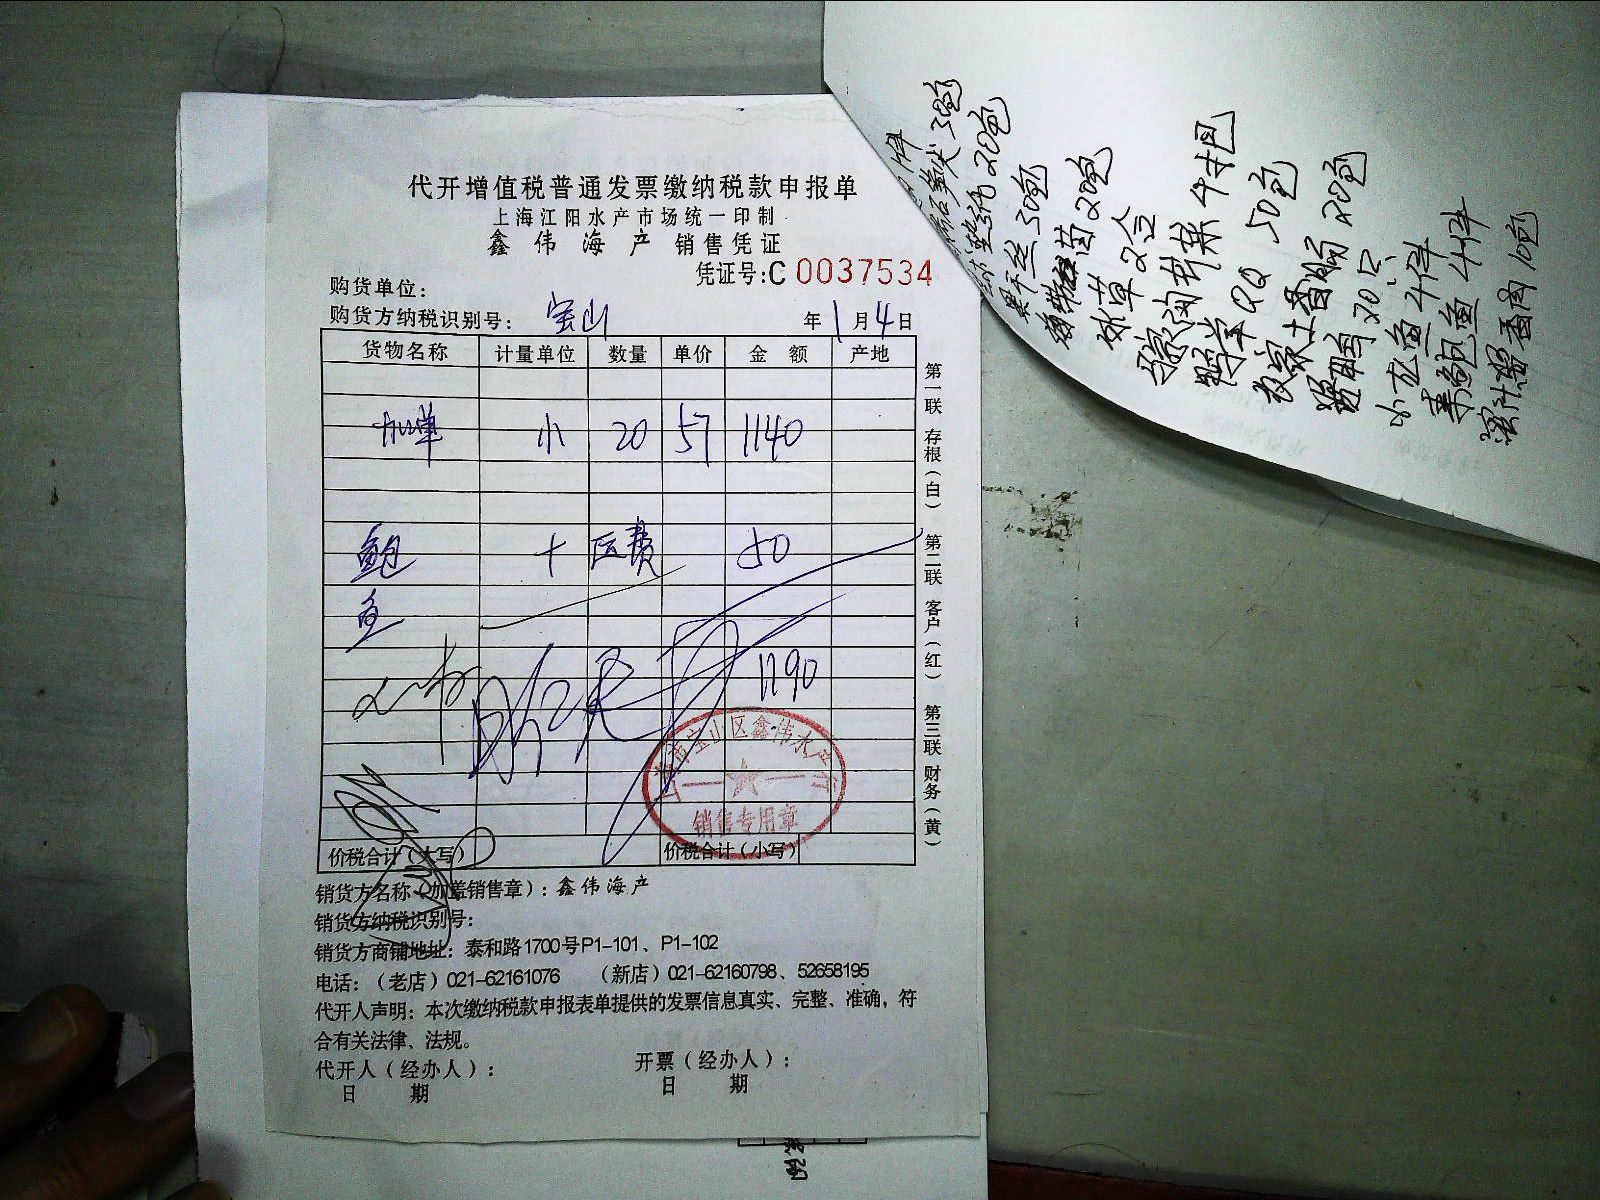 代开增值税普通发票缴纳税款申报单
上海江阳水产市场统一印制
鑫伟海产 销售凭证
凭证号:C 0037534
购货单位:
购货方纳税识别号: 宝山 年1月4日
货物名称 计量单位 数量 单价 金额 产地
加单 小 20 57 1140
鲍 十 运费 50
鱼
1190
上海市宝山区鑫伟水产行
销售专用章
价税合计(大写) 价税合计(小写)
销货方名称(加盖销售章): 鑫伟海产
销货方纳税识别号:
销货方商铺地址: 泰和路1700号P1-101、P1-102
电话:(老店)021-62161076 (新店)021-62160798、52658195
代开人声明: 本次缴纳税款申报表单提供的发票信息真实、完整、准确,符
合有关法律、法规。
代开人(经办人): 开票(经办人):
日 期 日 期
第一联 存根(白) 第二联 客户(红) 第三联 财务(黄)
30包
垫纸 20包
丝 30包
菌 20包
冰草 2盒
4件
50包
香肠 20包
20只
小龙鱼 4件
鱼 4件
10包